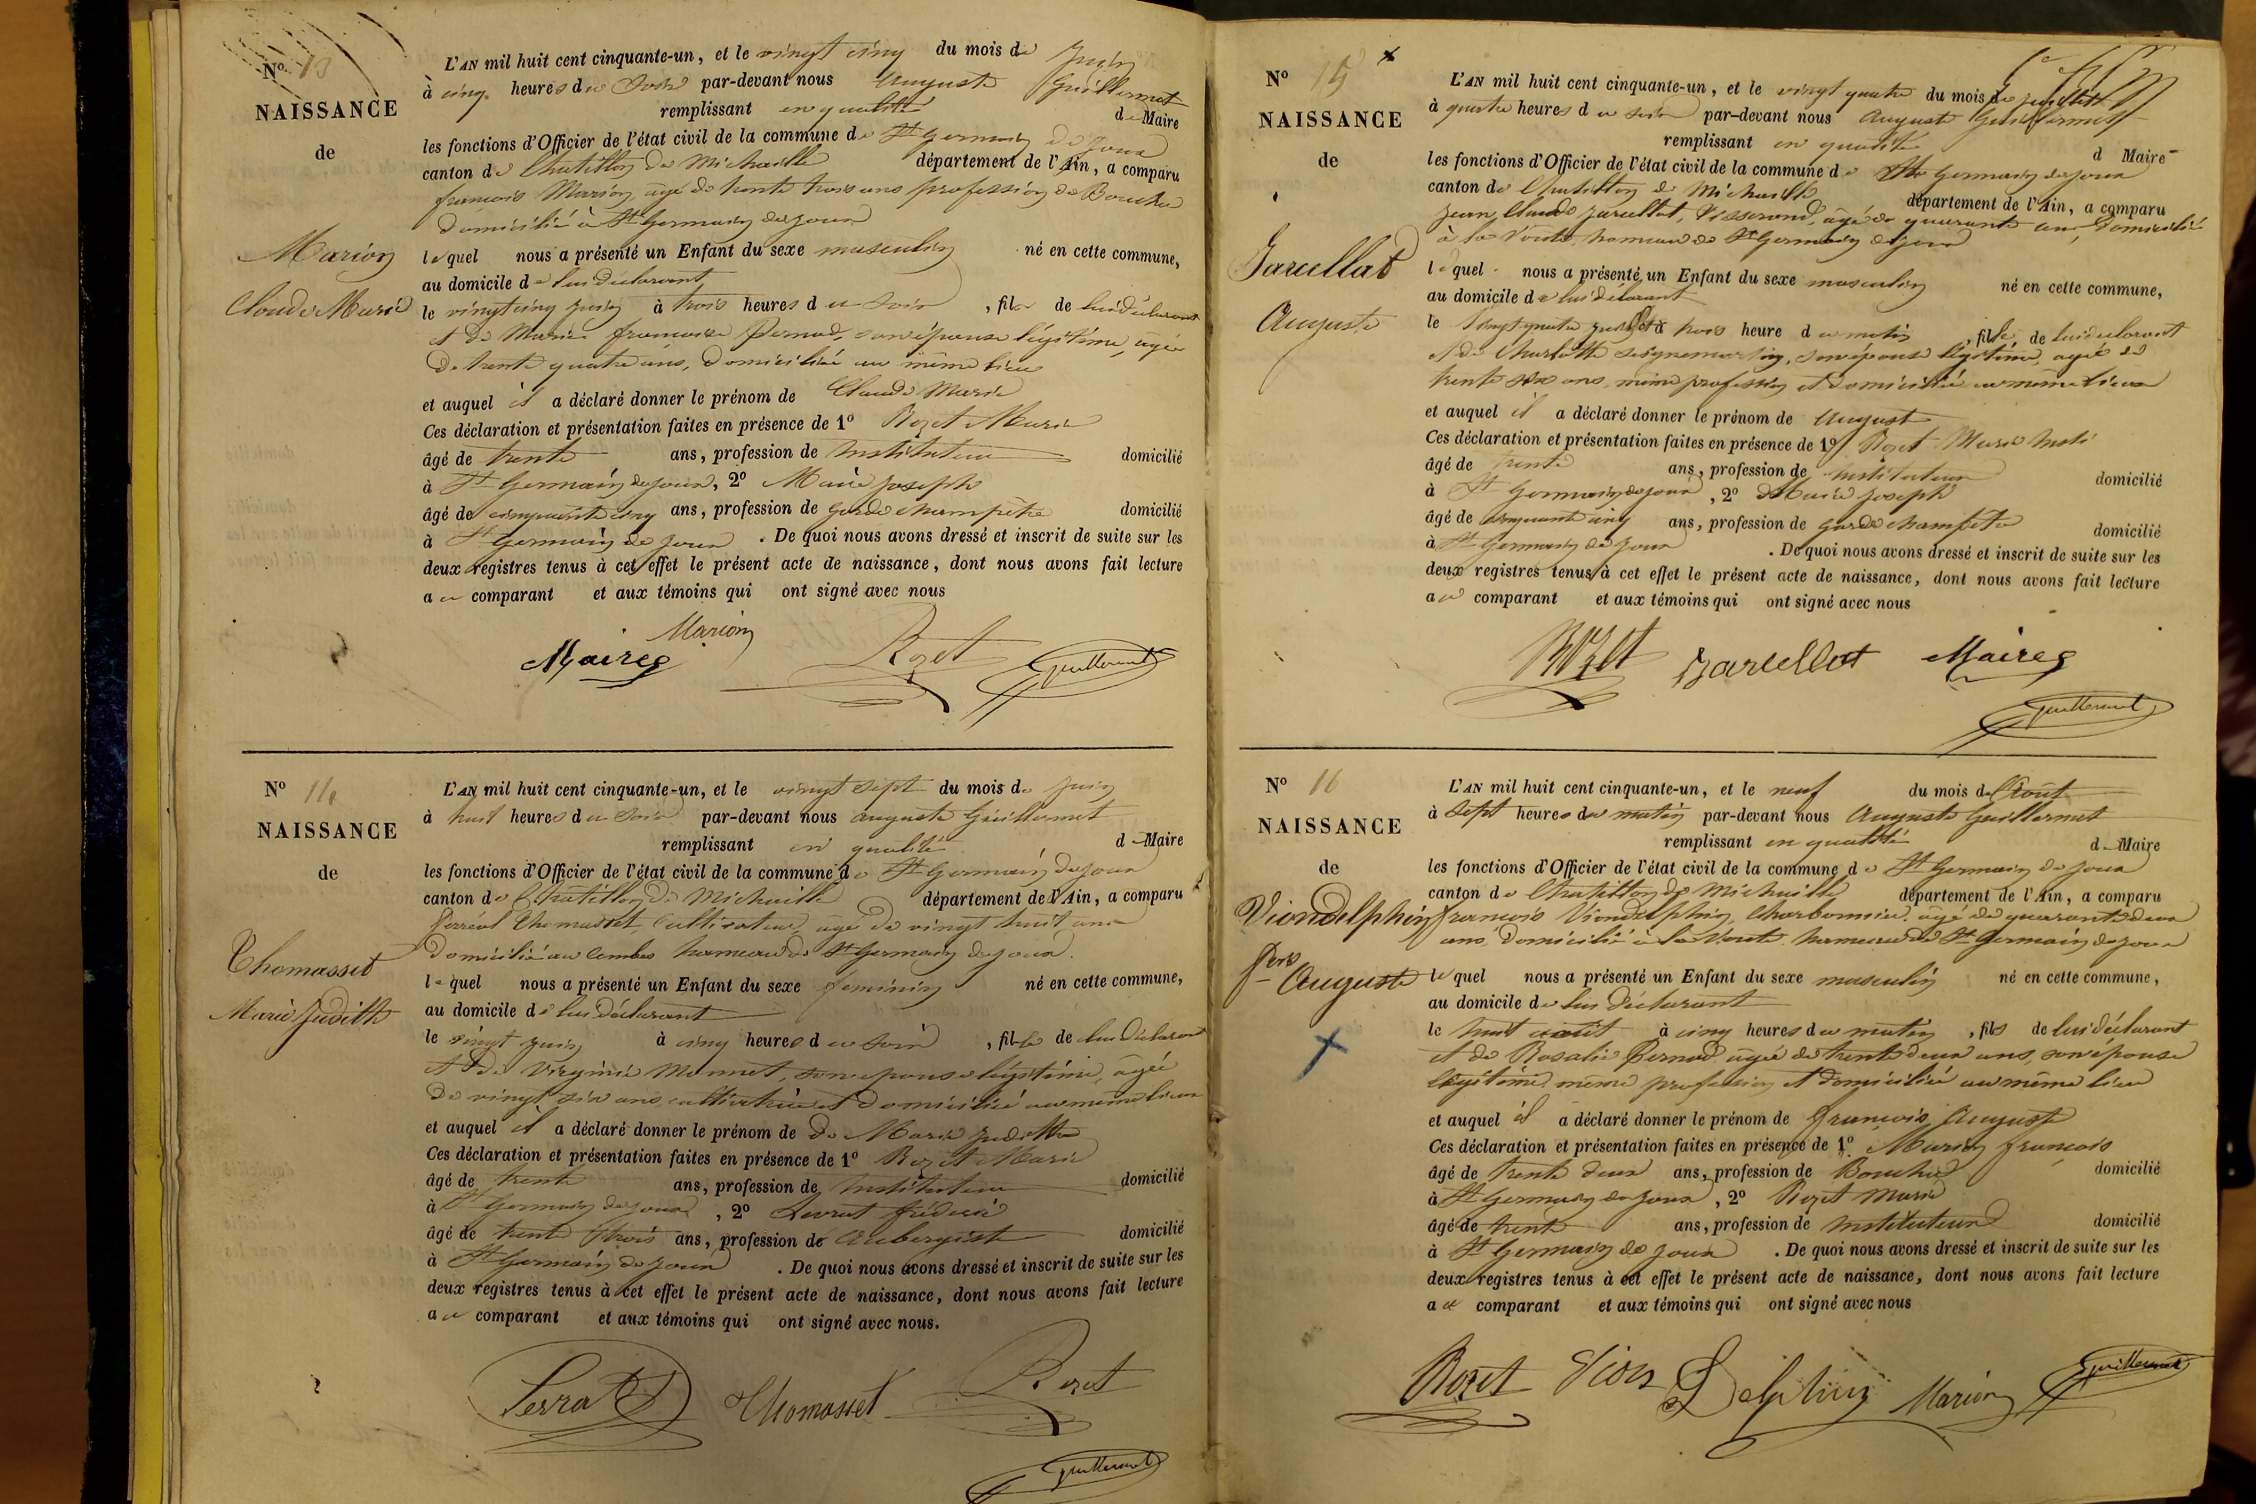 N° 13
NAISSANCE
de
Marion
Claude Marie
L'AN mil huit cent cinquante-un, et le vingt cinq du mois de Juin
à cinq heures du Soir par-devant nous Auguste Guillermet
remplissant en qualité de Maire
les fonctions d'Officier de l'état civil de la commune de St Germain de Joux
canton de Chatillon de Michaille département de l'Ain, a comparu
francois Marion âgé de trente trois ans profession de Boucher
domicilié à St Germain de Joux
lequel nous a présenté un Enfant du sexe masculin né en cette commune,
au domicile de lui déclarant
le vingt cinq juin à trois heures du soir, fils de lui déclarant
et de Marie francoise Pernod, son épouse légitime, agée
de trente quatre ans, domiciliée au même lieu
et auquel il a déclaré donner le prénom de Claude Marie
Ces déclaration et présentation faites en présence de 1° Rozet Marie
âgé de trente ans, profession de Instituteur domicilié
à St Germain de Joux, 2° Maire Joseph
âgé de cinquante cinq ans, profession de garde champêtre domicilié
à St Germain de Joux. De quoi nous avons dressé et inscrit de suite sur les
deux registres tenus à cet effet le présent acte de naissance, dont nous avons fait lecture
au comparant et aux témoins qui ont signé avec nous
Marion
Maire Rozet Guillermet
N° 14
NAISSANCE
de
Thomasset
Marie Judith
L'AN mil huit cent cinquante-un, et le vingt sept du mois de Juin
à huit heures du Soir par-devant nous auguste Guillermet
remplissant en qualité de Maire
les fonctions d'Officier de l'état civil de la commune de St Germain de Joux
canton de Chatillon de Michaille département de l'Ain, a comparu
Thomasset, Cultivateur, agé de vingt huit ans
domicilié au Combes hameau de St Germain de Joux.
lequel nous a présenté un Enfant du sexe féminin né en cette commune,
au domicile de lui déclarant
le vingt juin à cinq heures du soir, fille de lui déclarant
et de Virginie Monnet, son epouse légitime, agée
de vingt six ans cultivatrice et domiciliée au même lieu
et auquel il a déclaré donner le prénom de de Marie Judith
Ces déclaration et présentation faites en présence de 1° Rozet Marie
âgé de trente ans, profession de Instituteur domicilié
à St Germain de Joux, 2° frédéric
âgé de trente trois ans, profession de Aubergiste domicilié
à St Germain de Joux. De quoi nous avons dressé et inscrit de suite sur les
deux registres tenus à cet effet le présent acte de naissance, dont nous avons fait lecture
au comparant et aux témoins qui ont signé avec nous.
Thomasset Rozet
Guillermet
N° 15
NAISSANCE
de
Jarcellat
Auguste
L'AN mil huit cent cinquante-un, et le vingt quatre du mois de juillet
à quatre heures du soir par-devant nous Auguste Guillermet
remplissant en qualité d Maire
les fonctions d'Officier de l'état civil de la commune de St Germain de Joux
canton de Chatillon de Michaille département de l'Ain, a comparu
Jean Claude Jarcellat, Tisserand, agé de quarante ans, domicilié
à la Voute, hameau de St Germain de Joux
lequel nous a présenté un Enfant du sexe masculin né en cette commune,
au domicile de lui déclarant
le vingt quatre juillet à trois heure du matin, fils de lui déclarant
et de Charlotte, son épouse légitime, agée de
trente six ans, même profession et domiciliée au même lieu
et auquel il a déclaré donner le prénom de August
Ces déclaration et présentation faites en présence de 1° Rozet Marie
âgé de trente ans, profession de Instituteur domicilié
à St Germain de Joux, 2° Maire Joseph
âgé de cinquante cinq ans, profession de garde champêtre domicilié
à St Germain de Joux. De quoi nous avons dressé et inscrit de suite sur les
deux registres tenus à cet effet le présent acte de naissance, dont nous avons fait lecture
au comparant et aux témoins qui ont signé avec nous
Rozet Jarcellat Maire
Guillermet
N° 16
NAISSANCE
de
Viondelphin
fçois Auguste
L'AN mil huit cent cinquante-un, et le neuf du mois d'Août
à Sept heures du matin par-devant nous Auguste Guillermet
remplissant en qualité de Maire
les fonctions d'Officier de l'état civil de la commune de St Germain de Joux
canton de Chatillon de Michaille département de l'Ain, a comparu
francois Viondelphin, Charbonnier, âgé de quarante deux
ans, domicilié à la Voute hameau de St Germain de Joux
lequel nous a présenté un Enfant du sexe masculin né en cette commune,
au domicile de lui déclarant
le huit août à cinq heures du matin, fils de lui déclarant
et de Rosalie Pernod, agée de trente deux ans, son épouse
légitime même profession et domiciliée au même lieu
et auquel il a déclaré donner le prénom de francois, Auguste
Ces déclaration et présentation faites en présence de 1° Marion francois
âgé de trente deux ans, profession de Boucher domicilié
à St Germain de Joux, 2° Rozet Marie
âgé de trente ans, profession de Instituteur domicilié
à St Germain de Joux. De quoi nous avons dressé et inscrit de suite sur les
deux registres tenus à cet effet le présent acte de naissance, dont nous avons fait lecture
au comparant et aux témoins qui ont signé avec nous
Rozet Vion Delphin Marion Guillermet